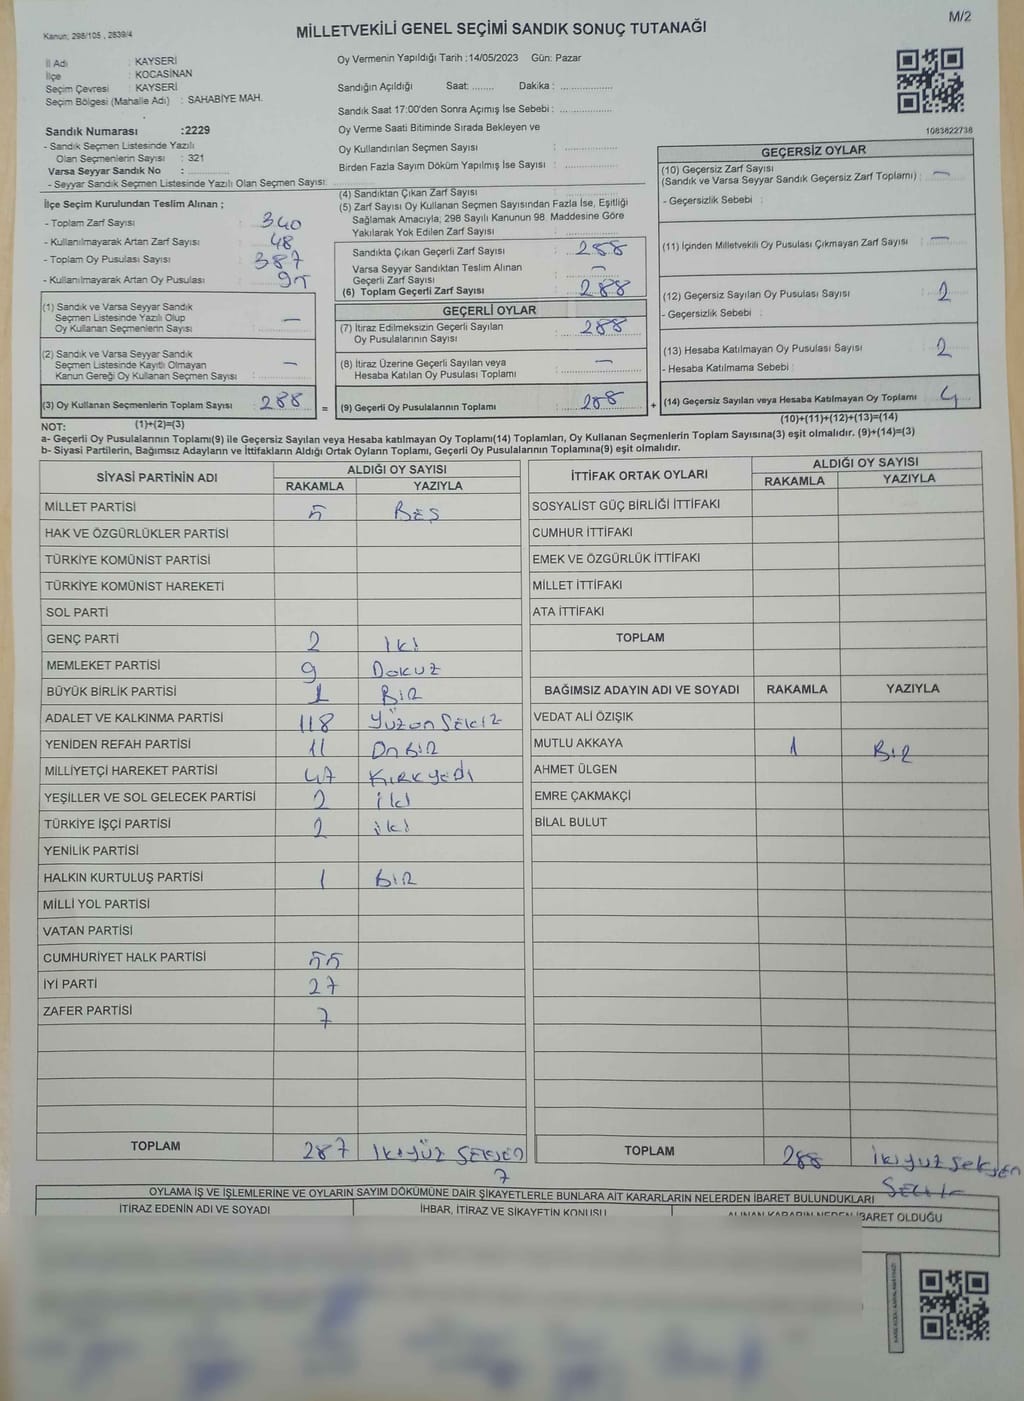 M/2
Kanun: 298/105 , 2839/4
MİLLETVEKİLİ GENEL SEÇİMİ SANDIK SONUÇ TUTANAĞI
İl Adı : KAYSERİ
İlçe : KOCASİNAN
Seçim Çevresi : KAYSERİ
Seçim Bölgesi (Mahalle Adı) : SAHABİYE MAH.
Sandık Numarası :2229
- Sandık Seçmen Listesinde Yazılı
Olan Seçmenlerin Sayısı : 321
Varsa Seyyar Sandık No :
- Seyyar Sandık Seçmen Listesinde Yazılı Olan Seçmen Sayısı:
Oy Vermenin Yapıldığı Tarih :14/05/2023 Gün: Pazar
Sandığın Açıldığı Saat: ........ Dakika : ................
Sandık Saat 17:00'den Sonra Açımış İse Sebebi : ................
Oy Verme Saati Bitiminde Sırada Bekleyen ve
Oy Kullandırılan Seçmen Sayısı : ................
Birden Fazla Sayım Döküm Yapılmış İse Sayısı : ................
1083822738
İlçe Seçim Kurulundan Teslim Alınan ;
- Toplam Zarf Sayısı : 340
- Kullanılmayarak Artan Zarf Sayısı : 48
- Toplam Oy Pusulası Sayısı : 387
- Kullanılmayarak Artan Oy Pusulası : 95
(1) Sandık ve Varsa Seyyar Sandık
Seçmen Listesinde Yazılı Olup
Oy Kullanan Seçmenlerin Sayısı : —
(2) Sandık ve Varsa Seyyar Sandık
Seçmen Listesinde Kayıtlı Olmayan
Kanun Gereği Oy Kullanan Seçmen Sayısı : —
(3) Oy Kullanan Seçmenlerin Toplam Sayısı : 288 =
(1)+(2)=(3)
(4) Sandıktan Çıkan Zarf Sayısı : ................
(5) Zarf Sayısı Oy Kullanan Seçmen Sayısından Fazla İse, Eşitliği
Sağlamak Amacıyla; 298 Sayılı Kanunun 98. Maddesine Göre
Yakılarak Yok Edilen Zarf Sayısı : ................
Sandıkta Çıkan Geçerli Zarf Sayısı : 288
Varsa Seyyar Sandıktan Teslim Alınan
Geçerli Zarf Sayısı : —
(6) Toplam Geçerli Zarf Sayısı : 288
GEÇERLİ OYLAR
(7) İtiraz Edilmeksizin Geçerli Sayılan
Oy Pusulalarının Sayısı : 288
(8) İtiraz Üzerine Geçerli Sayılan veya
Hesaba Katılan Oy Pusulası Toplamı : —
(9) Geçerli Oy Pusulalarının Toplamı : 288 +
GEÇERSİZ OYLAR
(10) Geçersiz Zarf Sayısı
(Sandık ve Varsa Seyyar Sandık Geçersiz Zarf Toplamı) : —
- Geçersizlik Sebebi :
(11) İçinden Milletvekili Oy Pusulası Çıkmayan Zarf Sayısı : —
(12) Geçersiz Sayılan Oy Pusulası Sayısı : 2
- Geçersizlik Sebebi :
(13) Hesaba Katılmayan Oy Pusulası Sayısı : 2
- Hesaba Katılmama Sebebi :
(14) Geçersiz Sayılan veya Hesaba Katılmayan Oy Toplamı : 4
(10)+(11)+(12)+(13)=(14)
NOT:
a- Geçerli Oy Pusulalarının Toplamı(9) ile Geçersiz Sayılan veya Hesaba katılmayan Oy Toplamı(14) Toplamları, Oy Kullanan Seçmenlerin Toplam Sayısına(3) eşit olmalıdır. (9)+(14)=(3)
b- Siyasi Partilerin, Bağımsız Adayların ve İttifakların Aldığı Ortak Oyların Toplamı, Geçerli Oy Pusulalarının Toplamına(9) eşit olmalıdır.
SİYASİ PARTİNİN ADI ALDIĞI OY SAYISI
RAKAMLA YAZIYLA
MİLLET PARTİSİ 5 BEŞ
HAK VE ÖZGÜRLÜKLER PARTİSİ
TÜRKİYE KOMÜNİST PARTİSİ
TÜRKİYE KOMÜNİST HAREKETİ
SOL PARTİ
GENÇ PARTİ 2 İki
MEMLEKET PARTİSİ 9 Dokuz
BÜYÜK BİRLİK PARTİSİ 1 Bir
ADALET VE KALKINMA PARTİSİ 118 Yüzon Sekiz
YENİDEN REFAH PARTİSİ 11 On bir
MİLLİYETÇİ HAREKET PARTİSİ 47 Kırk yedi
YEŞİLLER VE SOL GELECEK PARTİSİ 2 iki
TÜRKİYE İŞÇİ PARTİSİ 2 iki
YENİLİK PARTİSİ
HALKIN KURTULUŞ PARTİSİ 1 Bir
MİLLİ YOL PARTİSİ
VATAN PARTİSİ
CUMHURİYET HALK PARTİSİ 55
İYİ PARTİ 27
ZAFER PARTİSİ 7
TOPLAM 287 İkiyüz SEKSEN
7
İTTİFAK ORTAK OYLARI ALDIĞI OY SAYISI
RAKAMLA YAZIYLA
SOSYALİST GÜÇ BİRLİĞİ İTTİFAKI
CUMHUR İTTİFAKI
EMEK VE ÖZGÜRLÜK İTTİFAKI
MİLLET İTTİFAKI
ATA İTTİFAKI
TOPLAM
BAĞIMSIZ ADAYIN ADI VE SOYADI RAKAMLA YAZIYLA
VEDAT ALİ ÖZIŞIK
MUTLU AKKAYA 1 Bir
AHMET ÜLGEN
EMRE ÇAKMAKÇİ
BİLAL BULUT
TOPLAM 288 ikiyuz seksen
Sekiz
OYLAMA İŞ VE İŞLEMLERİNE VE OYLARIN SAYIM DÖKÜMÜNE DAİR ŞİKAYETLERLE BUNLARA AİT KARARLARIN NELERDEN İBARET BULUNDUKLARI
İTİRAZ EDENİN ADI VE SOYADI İHBAR, İTİRAZ VE ŞİKAYETİN KONUSU ALINAN KARARIN NEDEN İBARET OLDUĞU